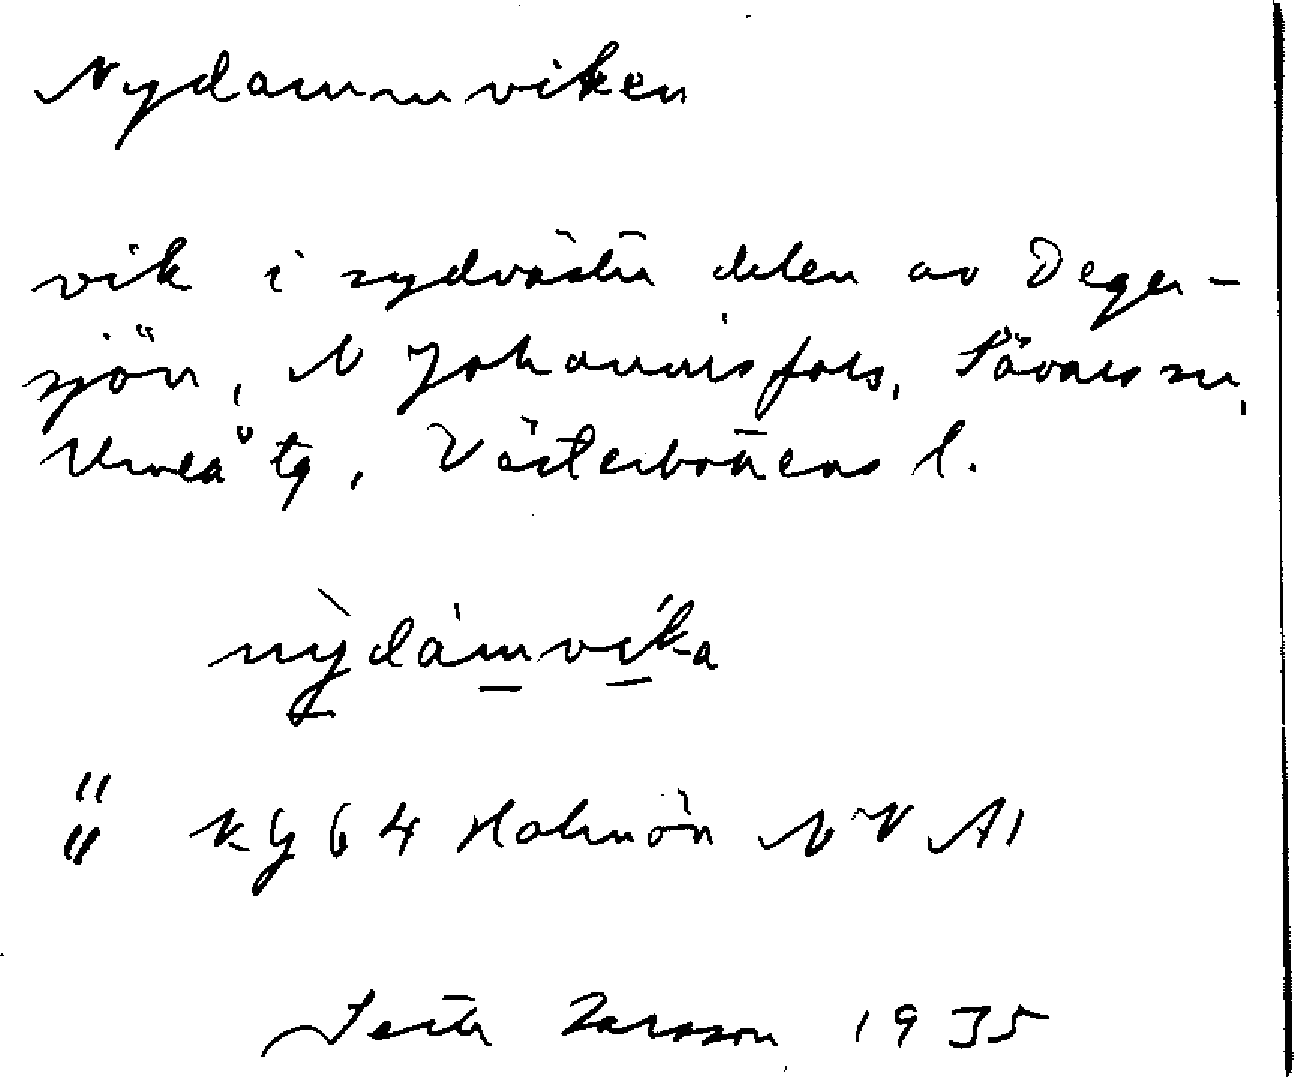 Nydammviken
vik i sydvästra delen av Deger-
sjön, N Johannisfors, Sävars sn,
Umeå tg, Västerbottens l.
nỳdámvika
" kg 64 Holmön NV A1
Larsson 1935